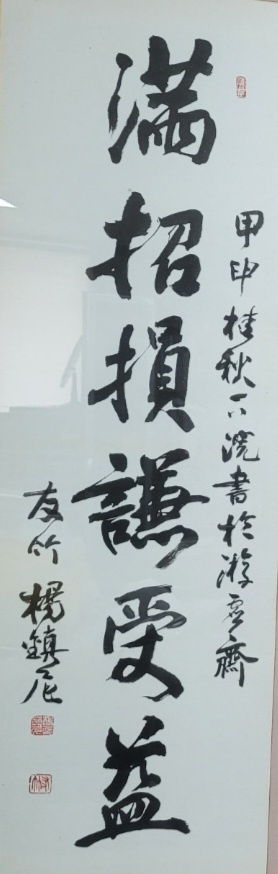 滿招損謙受益
甲申桂秋下浣書於游齋
友竹 楊鎮